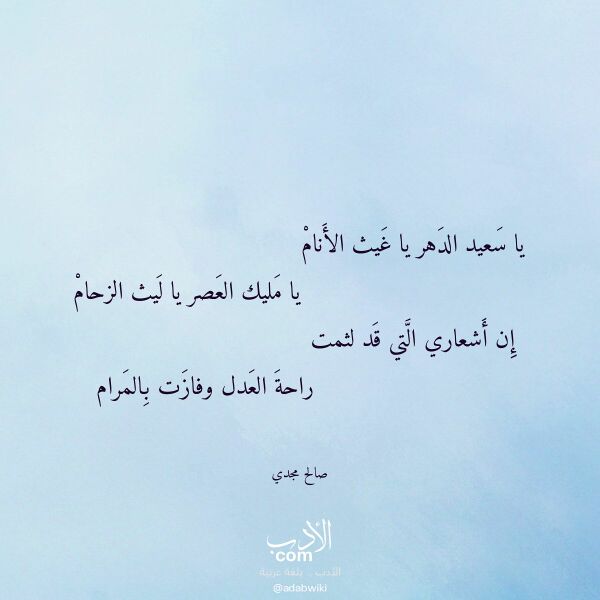 يا سَعيد الدَهر يا غَيث الأَنامْ
يا مَليك العَصر يا لَيث الزحامْ
إِن أَشعاري الَّتي قَد لثمت
راحةَ العَدل وفازَت بِالمَرام
صالح مجدي
الأدب
com
الأدب .. بلغة عربية
@adabwiki